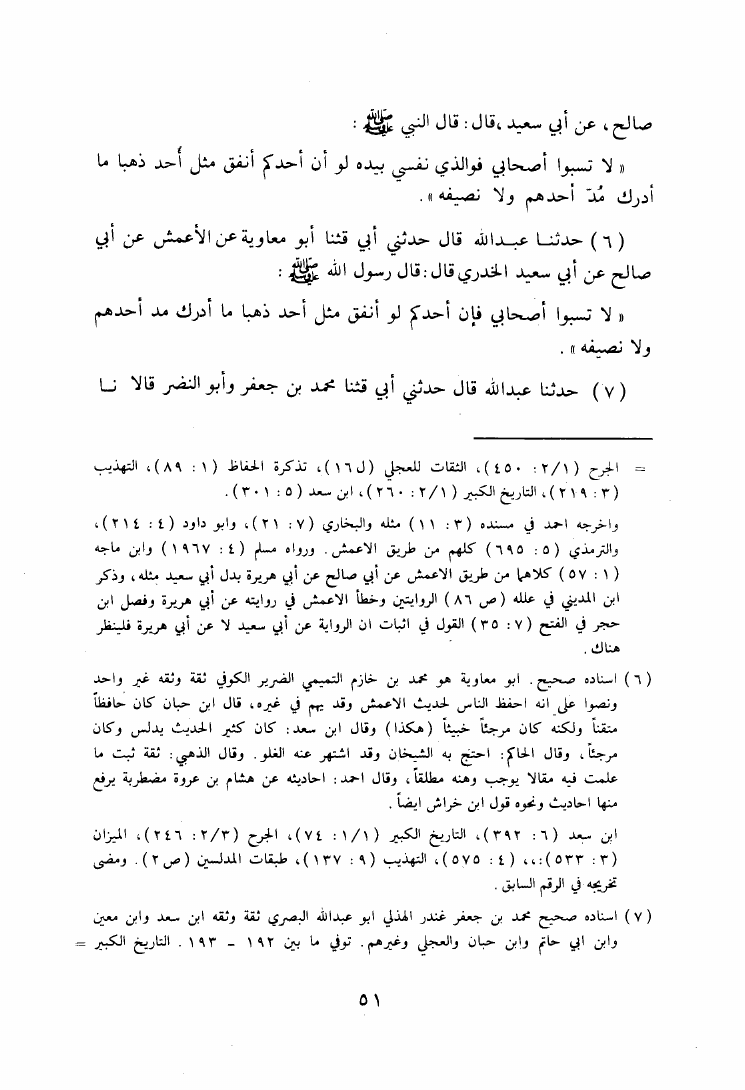 صالح، عن أبي سعيد، قال: قال النبي ﷺ :
« لا تسبوا أصحابي فوالذي نفسي بيده لو أن أحدكم أنفق مثل أُحد ذهبا ما
أدرك مُدّ أحدهم ولا نصيفه ».
(٦) حدثنا عبدالله قال حدثني أبي قثنا أبو معاوية عن الأعمش عن أبي
صالح عن أبي سعيد الخدري قال: قال رسول الله ﷺ :
« لا تسبوا أصحابي فإن أحدكم لو أنفق مثل أحد ذهبا ما أدرك مد أحدهم
ولا نصيفه ».
(٧) حدثنا عبدالله قال حدثني أبي قثنا محمد بن جعفر وأبو النضر قالا نا
= الجرح (٢/١: ٤٥٠)، الثقات للعجلي (ل١٦)، تذكرة الحفاظ (١: ٨٩)، التهذيب
(٣: ٢١٩)، التاريخ الكبير (٢/١: ٢٦٠)، ابن سعد (٥: ٣٠١).
واخرجه احمد في مسنده (٣: ١١) مثله والبخاري (٧: ٢١)، وابو داود (٤: ٢١٤)،
والترمذي (٥: ٦٩٥) كلهم من طريق الاعمش. ورواه مسلم (٤: ١٩٦٧) وابن ماجه
(١: ٥٧) كلاهما من طريق الاعمش عن أبي صالح عن أبي هريرة بدل أبي سعيد مثله، وذكر
ابن المديني في علله (ص ٨٦) الروايتين وخطأ الاعمش في روايته عن أبي هريرة وفصل ابن
حجر في الفتح (٧: ٣٥) القول في اثبات ان الرواية عن أبي سعيد لا عن أبي هريرة فلينظر
هناك.
(٦) اسناده صحيح. ابو معاوية هو محمد بن خازم التميمي الضرير الكوفي ثقة وثقه غير واحد
ونصوا على انه احفظ الناس لحديث الاعمش وقد يهم في غيره، قال ابن حبان كان حافظاً
متقناً ولكنه كان مرجئاً خبيثاً (هكذا) وقال ابن سعد: كان كثير الحديث يدلس وكان
مرجئاً، وقال الحاكم: احتج به الشيخان وقد اشتهر عنه الغلو. وقال الذهبي: ثقة ثبت ما
علمت فيه مقالا يوجب وهنه مطلقاً، وقال احمد: احاديثه عن هشام بن عروة مضطربة يرفع
منها احاديث ونحوه قول ابن خراش ايضاً.
ابن سعد (٦: ٣٩٢)، التاريخ الكبير (١/١: ٧٤)، الجرح (٢/٣: ٢٤٦)، الميزان
(٣: ٥٣٣):،، (٤: ٥٧٥)، التهذيب (٩: ١٣٧)، طبقات المدلسين (ص٢). ومضى
تخريجه في الرقم السابق.
(٧) اسناده صحيح محمد بن جعفر غندر الهذلي ابو عبدالله البصري ثقة وثقه ابن سعد وابن معين
وابن ابي حاتم وابن حبان والعجلي وغيرهم. توفي ما بين ١٩٢ - ١٩٣. التاريخ الكبير =
٥١